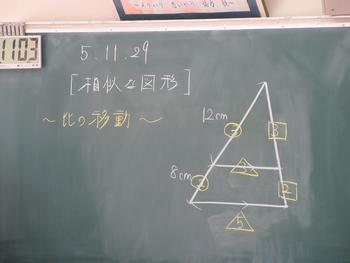 1103
5.11.29
[相似な図形]
～比の移動～
12cm
③
3
8cm
②
3
2
5